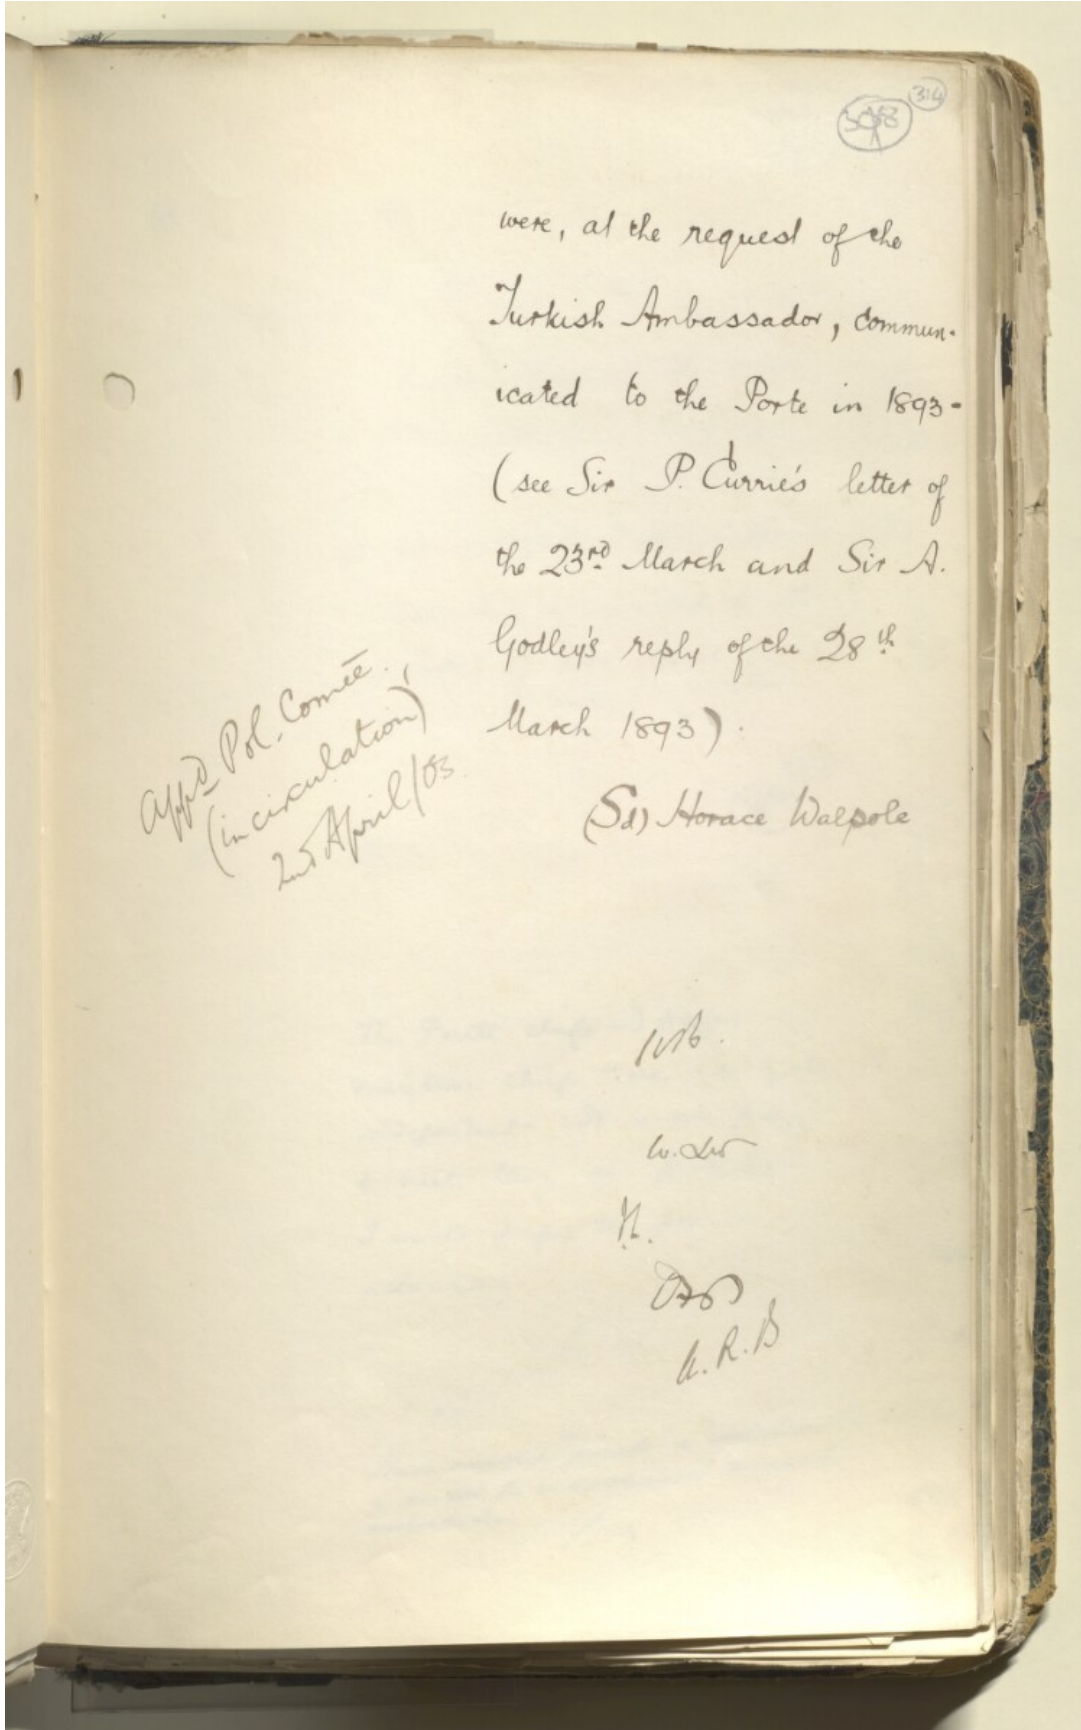 314
were, at the request of the
Turkish Ambassador, commun-
icated to the Porte in 1893-
(see Sir P. Currie's letter of
the 23rd March and Sir A.
Godley's reply of the 28th
March 1893).
(Sd) Horace Walpole
Appd Pol. Comee.,
(in circulation)
2nd April/03
A.R.B